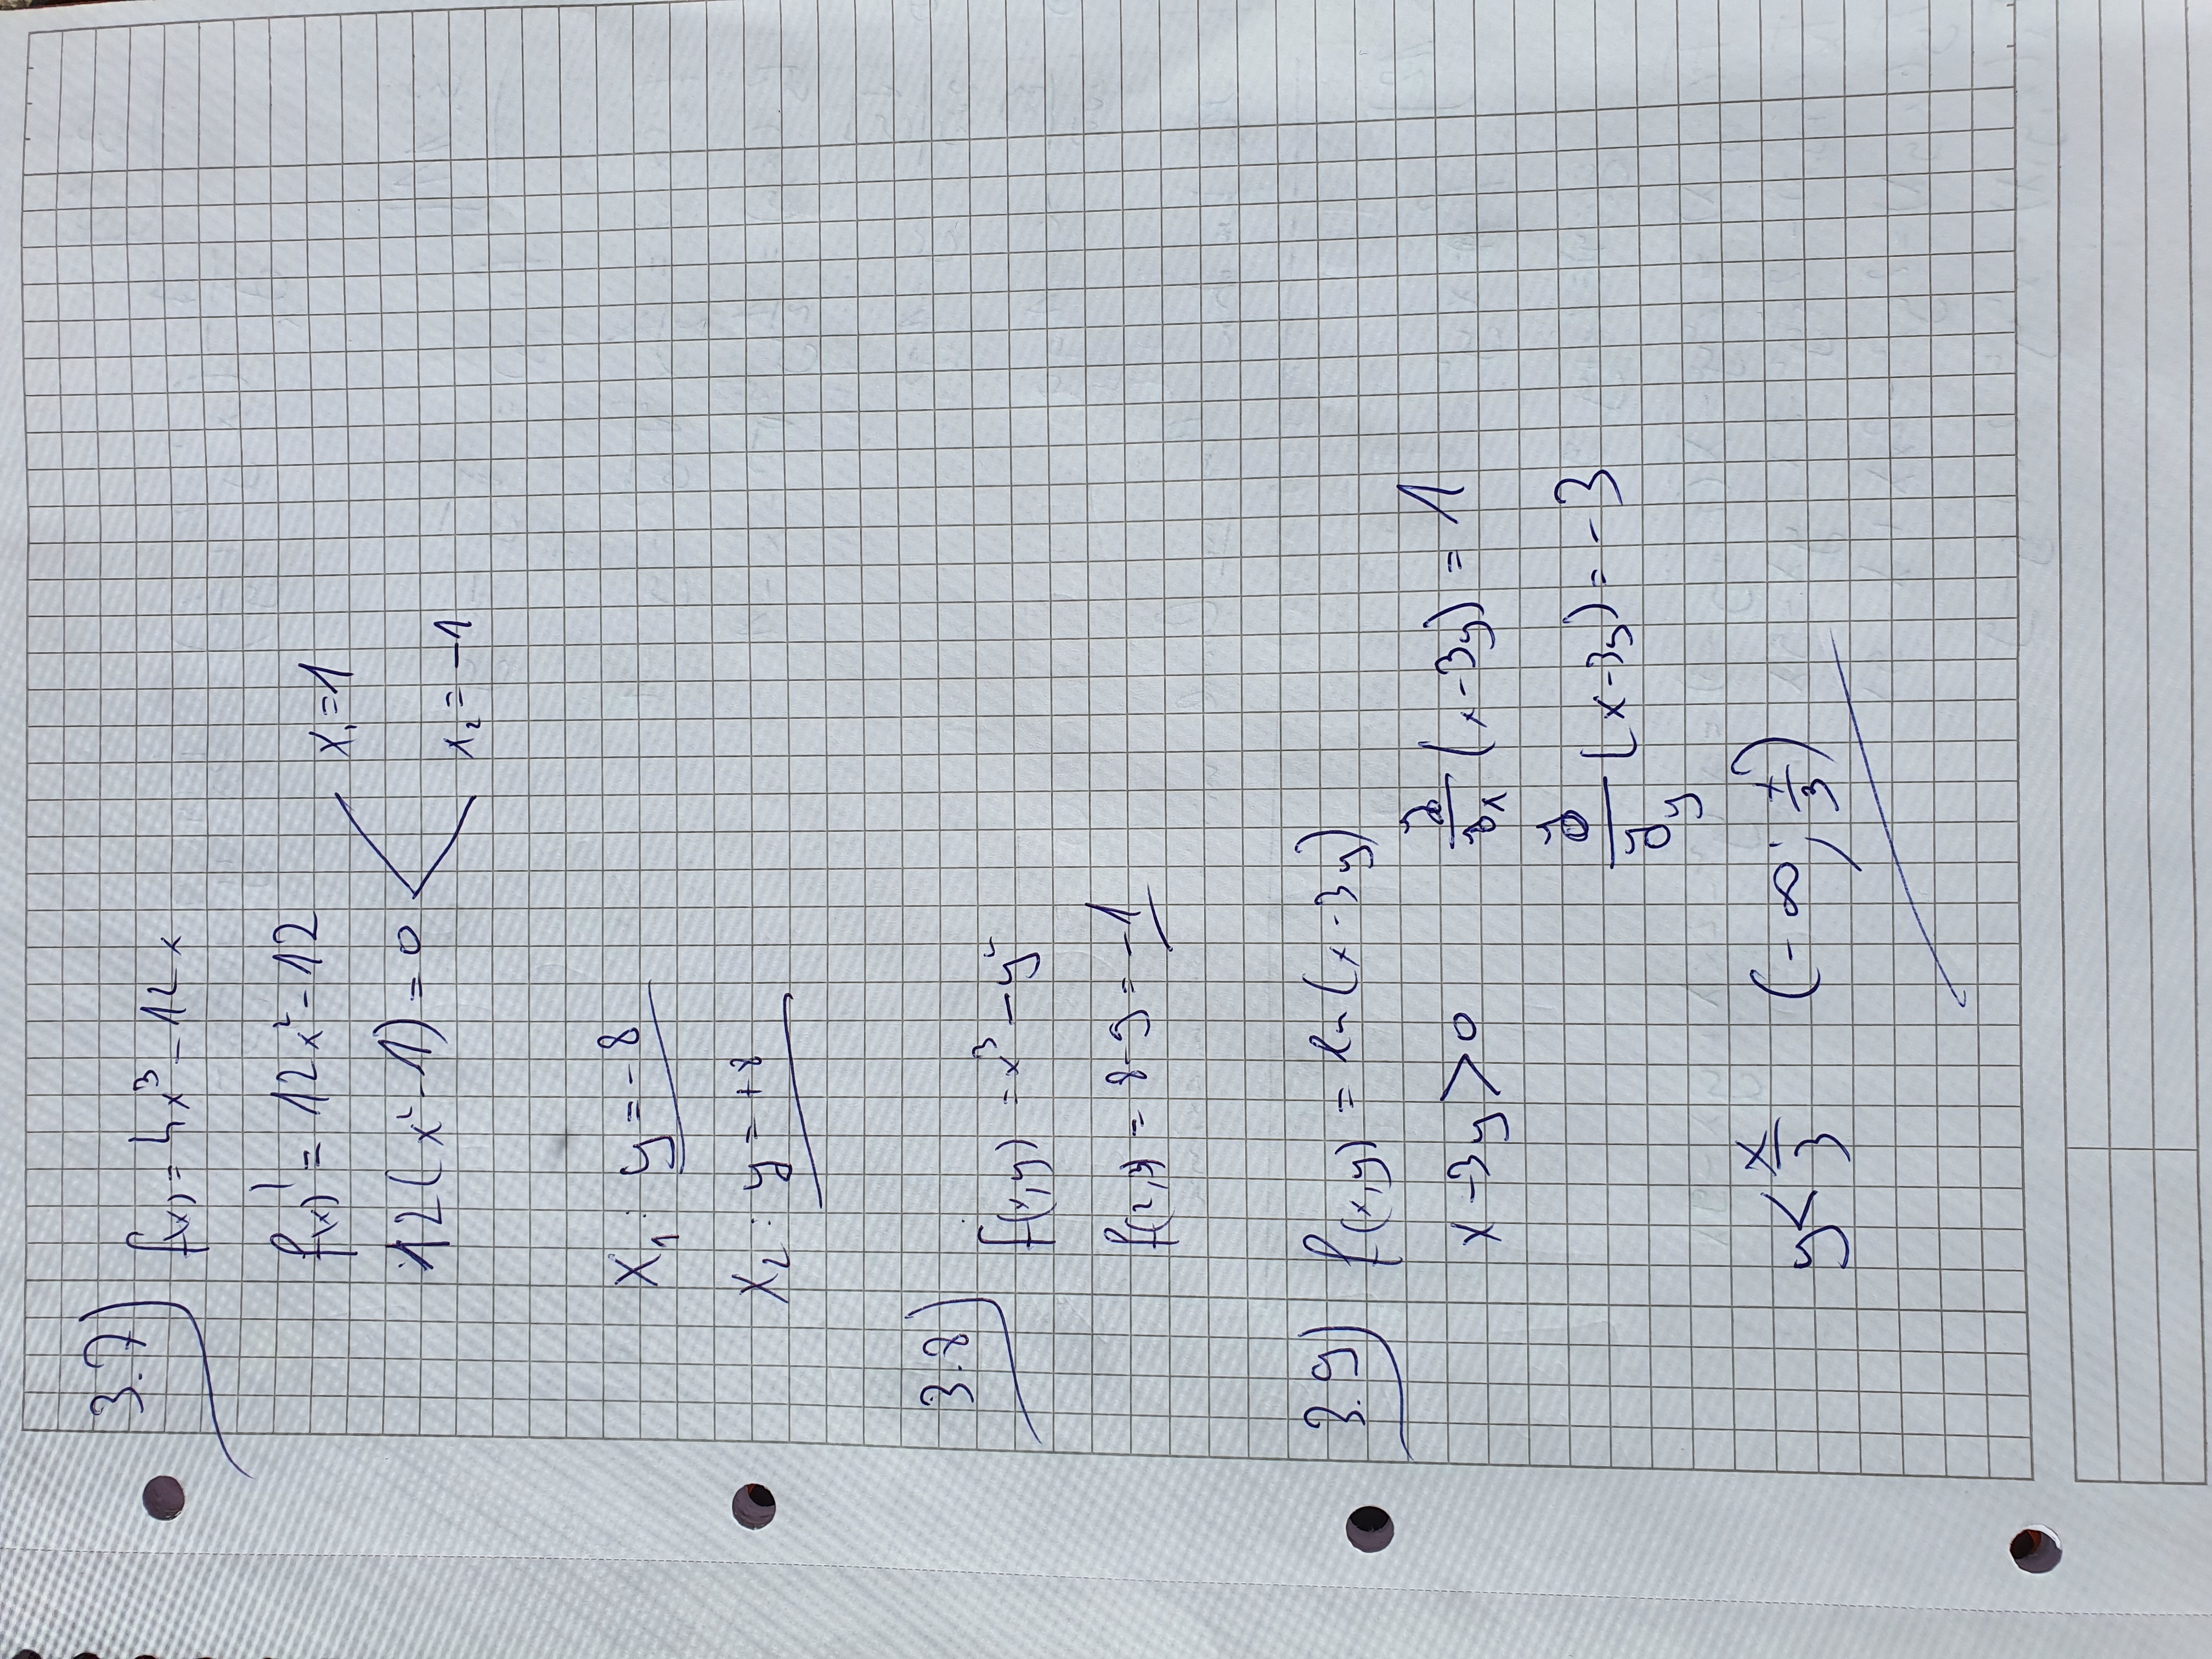 3.7)
f(x) = 4x³ - 12x
f(x)' = 12x² - 12
x₁ = 1
12(x² - 1) = 0
x₂ = -1
X₁ : y = -8
X₂ : y = +8
3.8)
f(x,y) = x³ - y²
f(2,3) = 8-9 = -1
3.9) f(x,y) = ln(x-3y)
x - 3y > 0    ∂/∂x (x-3y) = 1
∂/∂y (x-3y) = -3
y < x/3    (-∞; x/3)